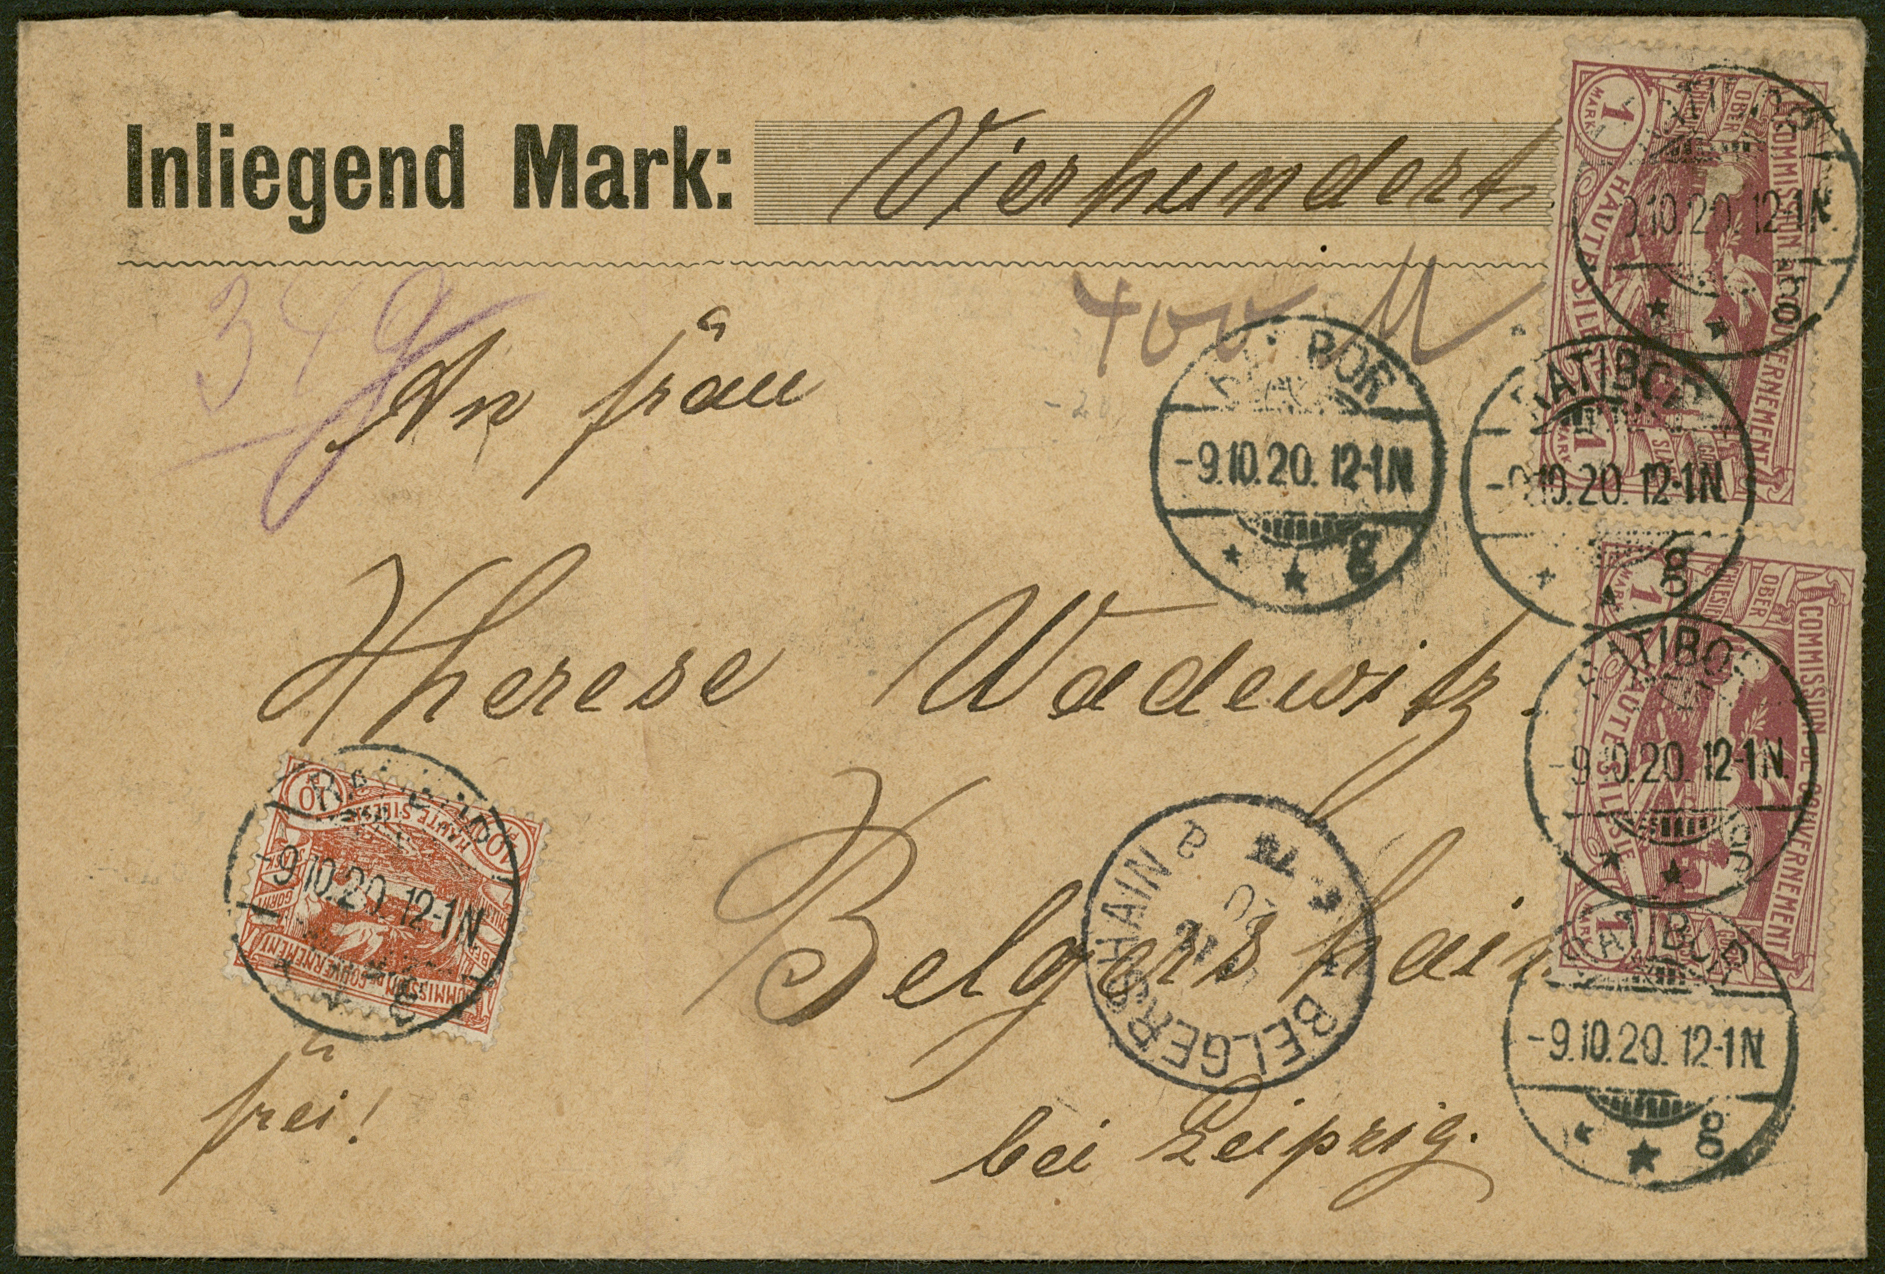 Inliegend Mark: Vierhundert
400 M
34 g
An Frau
Therese Wadewitz.
Belgershain
bei Leipzig.
frei!
1 MARK
OBER
COMMISSION DE GOUVERNEMENT
HAUTE SILESIE
1 MARK
RATIBOR
9.10.20. 12-1N.
RATIBOR
-9.10.20. 12-1N
g
RATIBOR
-9.10.20. 12-1N
g
1 MARK
OBER
COMMISSION DE GOUVERNEMENT
HAUTE SILESIE
1 MARK
RATIBOR
-9.10.20. 12-1N.
g
RATIBOR
-9.10.20. 12-1N
g
10
HAUTE SILESIE
10
COMMISSION DE GOUVERNEMENT
-9.10.20. 12-1N
BELGERSHAIN